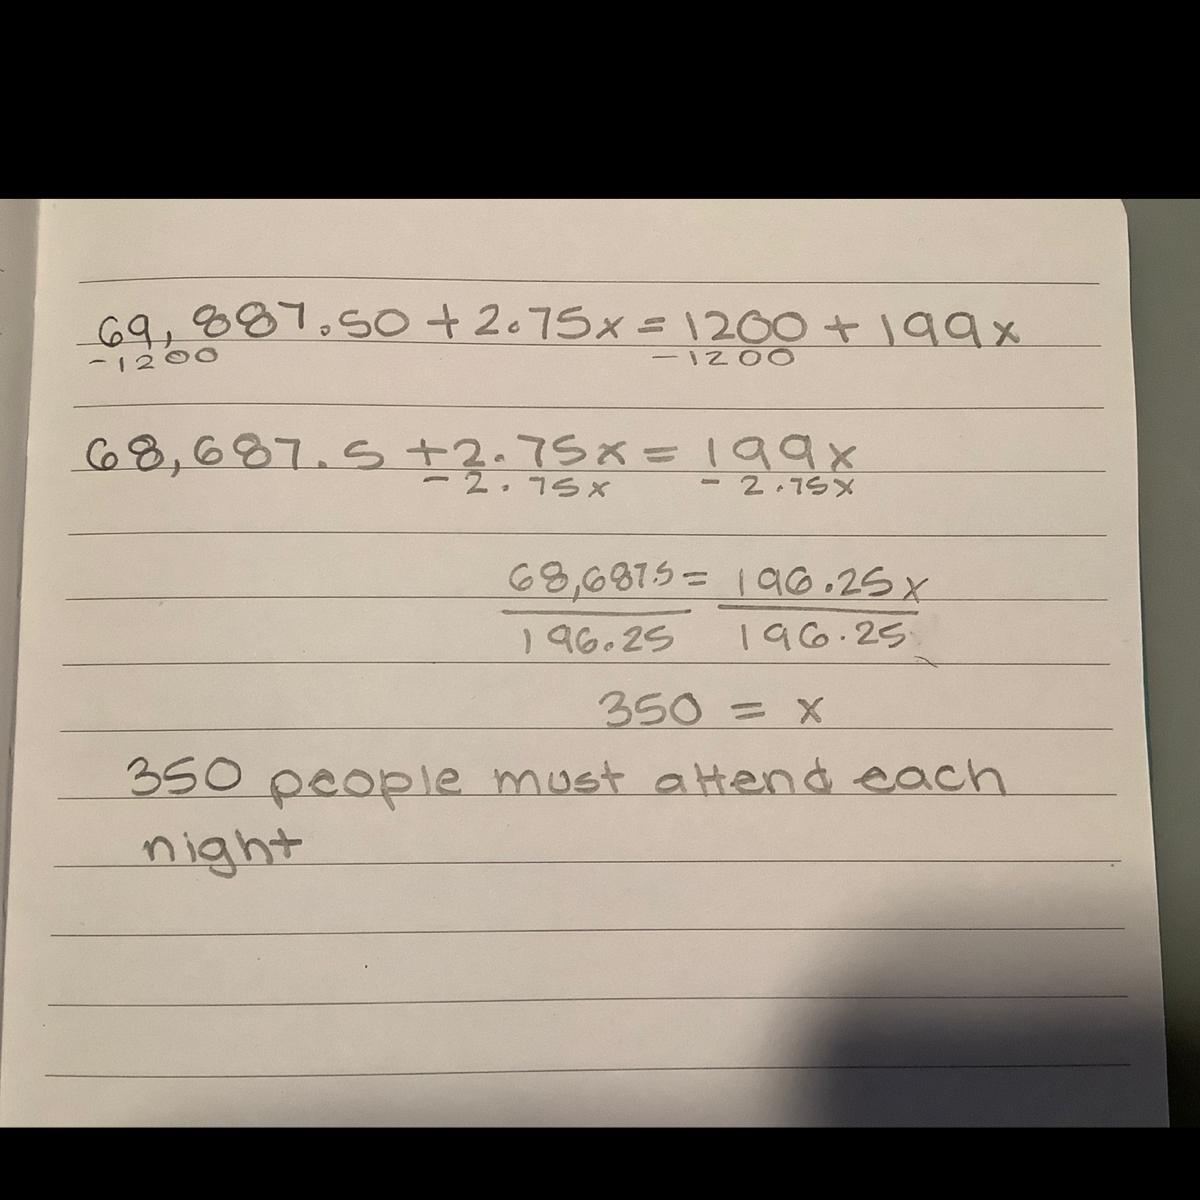 69,887.50 + 2.75x = 1200 + 199x
-1200 -1200
68,687.5 + 2.75x = 199x
- 2.75x - 2.75x
68,687.5 = 196.25x
196.25 196.25
350 = x
350 people must attend each
night